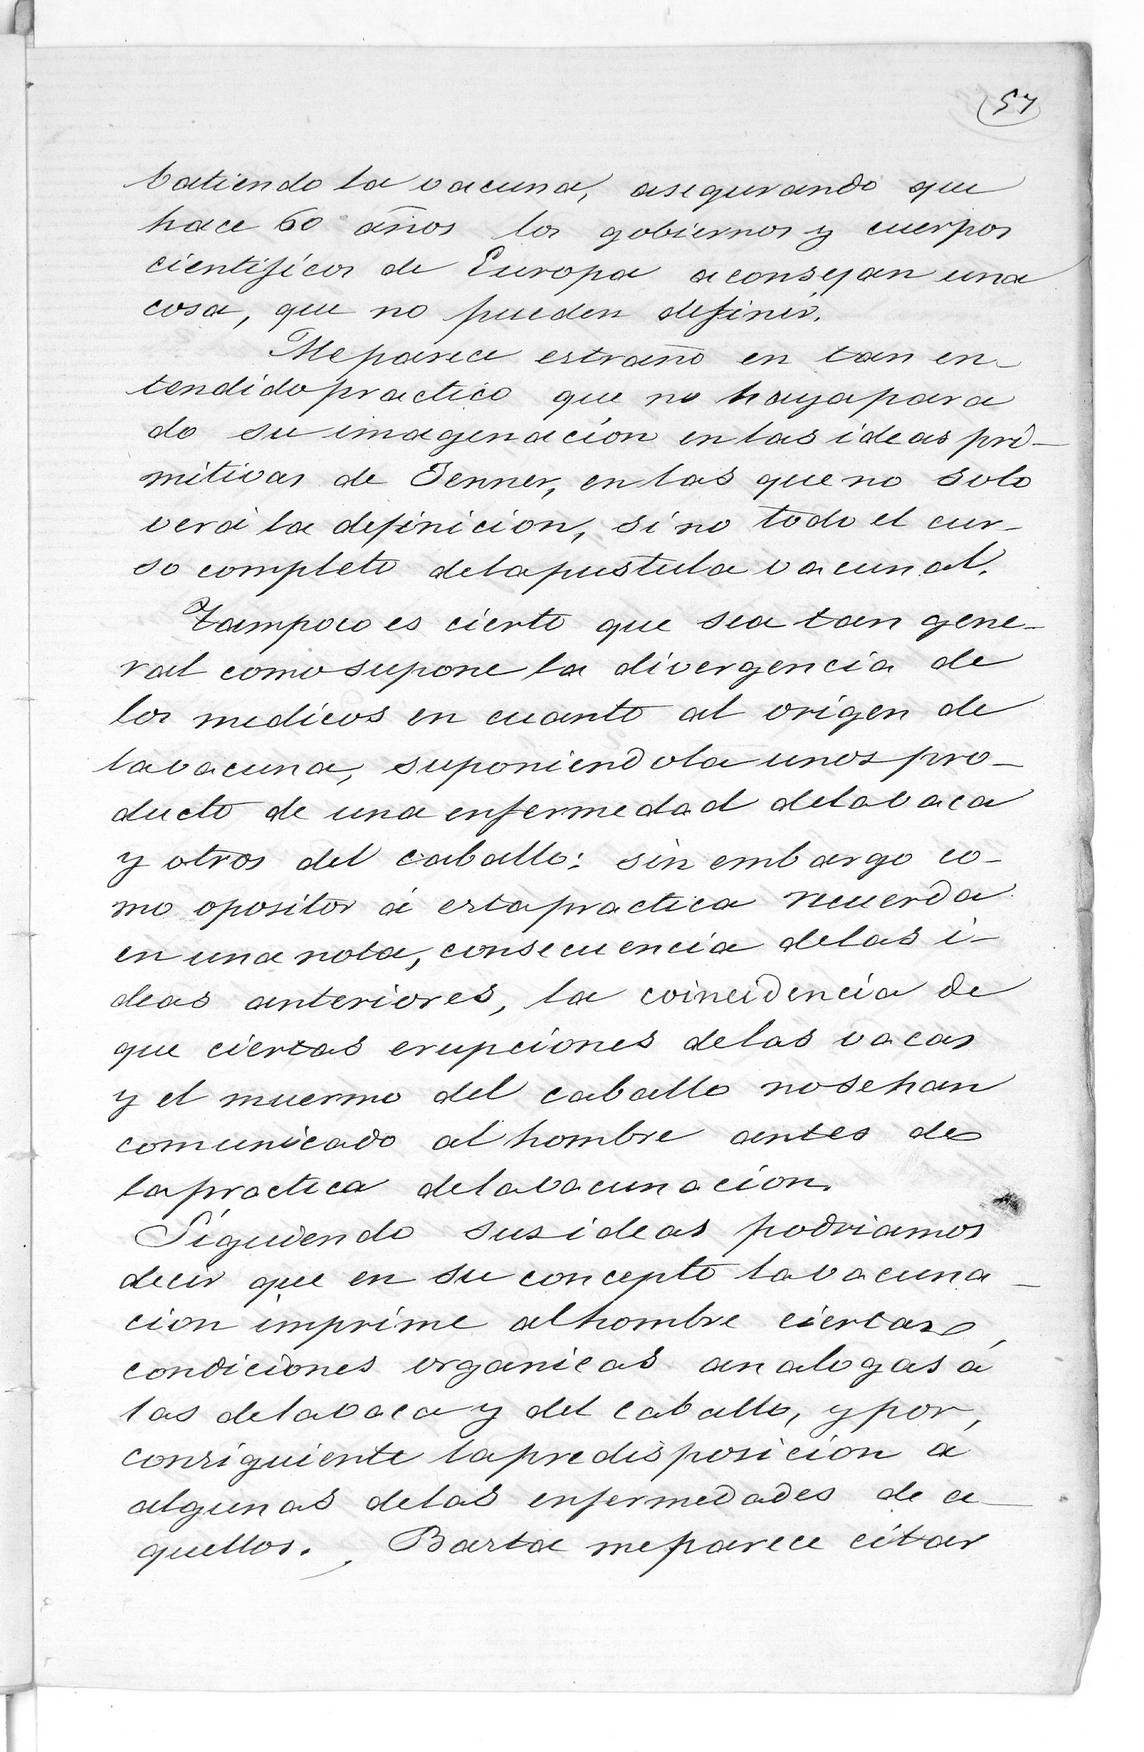 57
batiendo la vacuna, asegurando que
hace 60 años los gobiernos y cuerpos
cientificos de Europa aconsejan una
cosa, que no pueden definir.
Me parece estraño en tan en-
tendido practico que no haya para
do su imagenación en las ideas pri-
mitivas de Jenner, en las que no solo
verá la definicion, sino todo el cur-
so completo de la pustula vacunal.
Tampoco es cierto que sea tan gene-
ral como supone la divergencia de
los medicos en cuanto al origen de
la vacuna, suponiendola unos pro-
ducto de una enfermedad de la vaca
y otros del caballo: sin embargo co-
mo opositor á esta practica recuerda
en una nota, consecuencia de las i-
deas anteriores, la coincidencia de
que ciertas erupciones de las vacas
y el muermo del caballo no se han
comunicado al hombre antes de
la practica de la vacunacion.
Siguiendo sus ideas podriamos
decir que en su concepto la vacuna-
cion imprime al hombre ciertas,
condiciones organicas analogas á
las de la vaca y del caballo, y por,
consiguiente la predisposicion á
algunas de las enfermedades de a-
quellos. Basta me parece citar